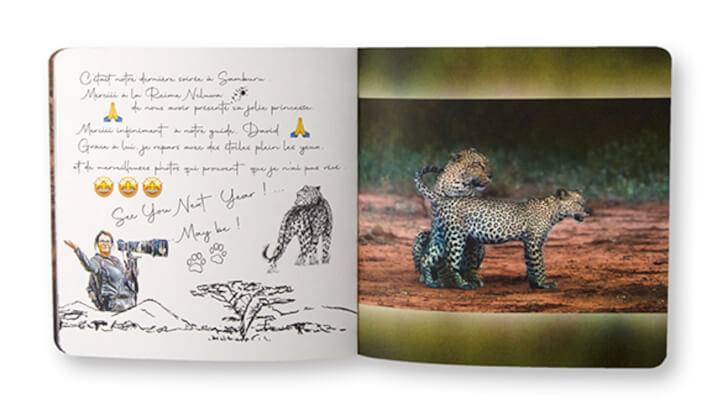 C'était notre dernière soirée à Samburu.
Merciii à la Reine Neluwa
de nous avoir présenté sa jolie princesse.
Merciii infiniment à notre guide, David
Grâce à lui, je repars avec des étoiles plein les yeux,
et de merveilleuses photos qui prouvent que je n'ai pas rêvé.
See You Next Year !...
May be !